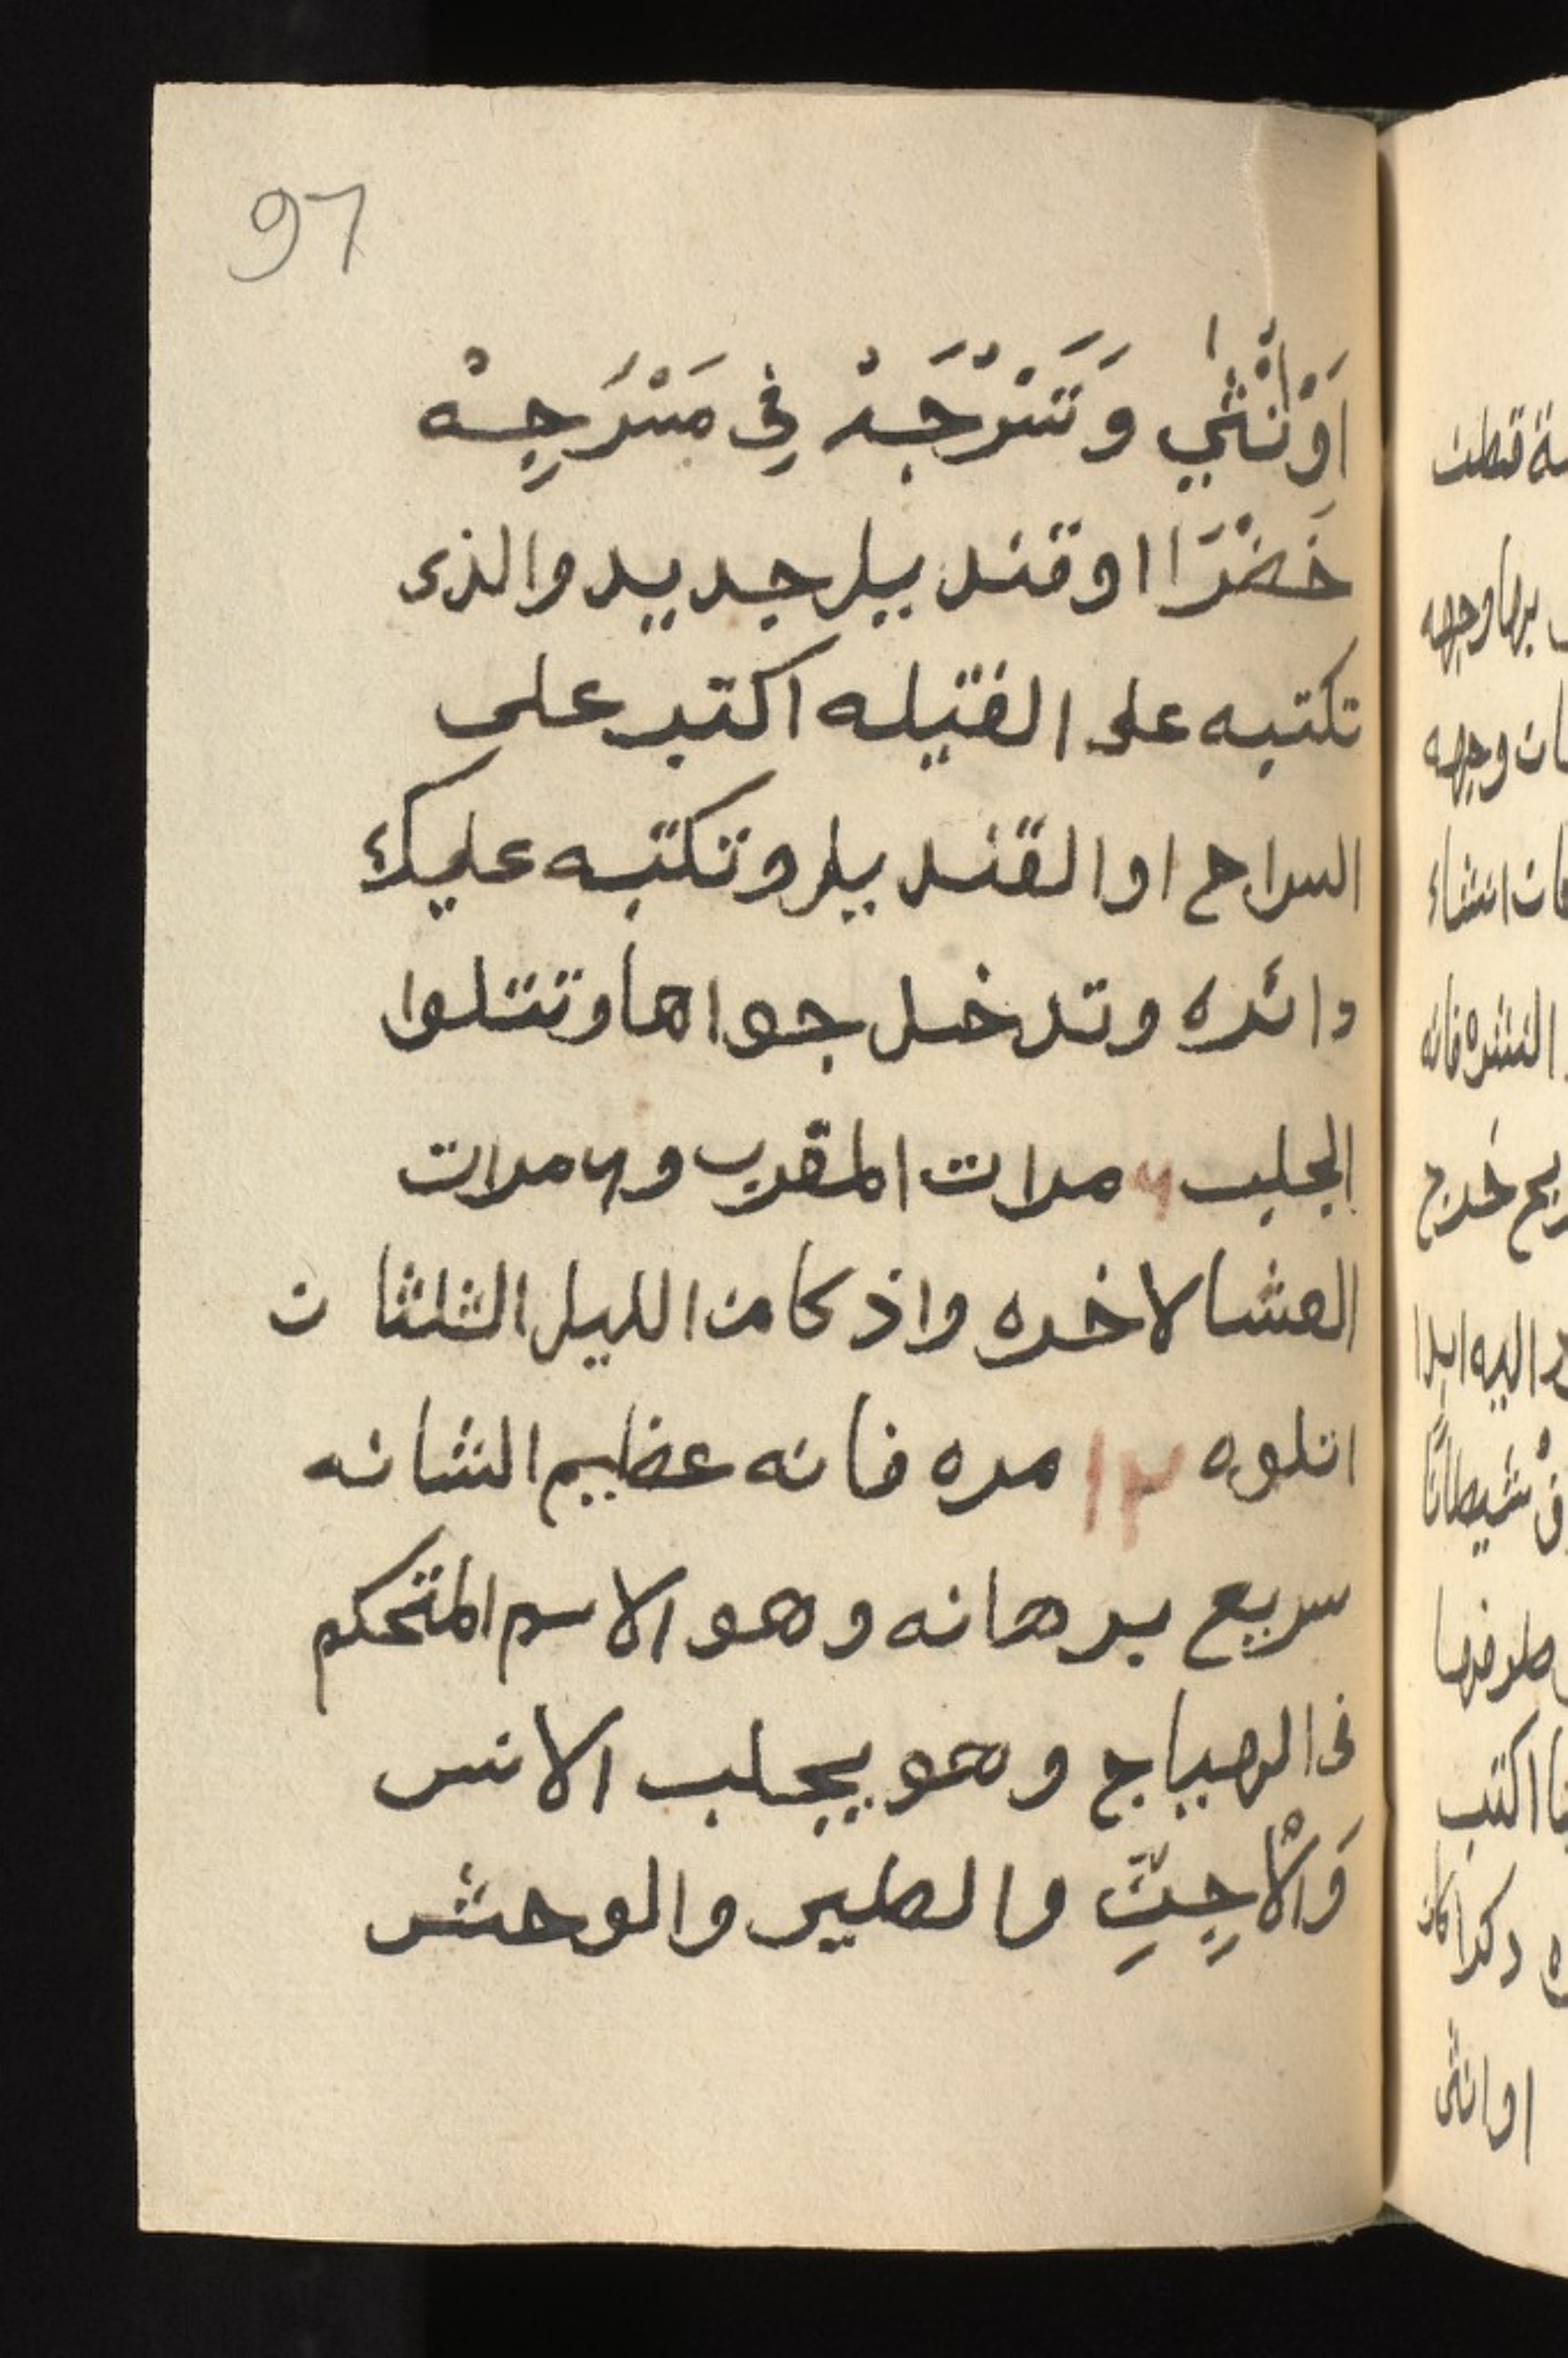 97
اَوْ اُنْثٰي وَتَسْرْجَهْ فِي مَسْرَجِهْ
خَضْرَا او قنديل جديد والذى
تكتبه على الفتيله اكتب على
السراج او القنديل وتكتبه عليك
دائره وتدخل جواها وتتلوا
الجلب ٧ مرات المقرب و ٧ مرات
العشا لاخره واذ كا من الليل الثلثا ن
اتلوه ١٢ مره فانه عظيم الشانه
سريع برهانه وهو الاسم المتحكم
فى الهياج وهو يجلب الانس
وَالْاجِنِّ والطير والوحش
قطن
وجهه
وجهه
انشاء
فانه
خرج
اليه ابدا
شيطانًا
اكتب
او انثى